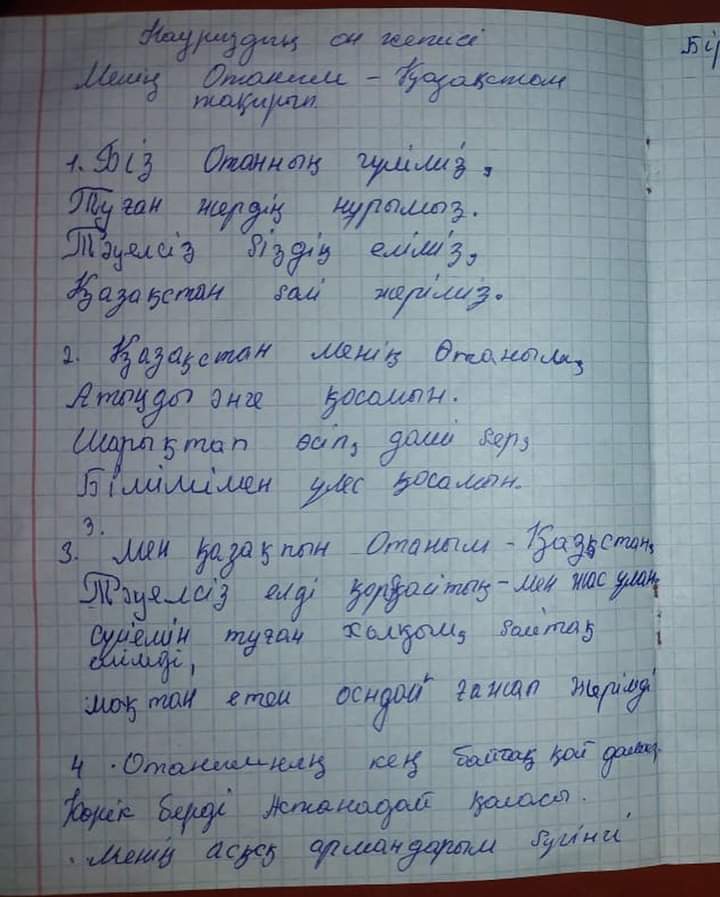 Науриздың он жетисі
Менің Отаним - Қазақстан
тақирып
Бір
1. Біз Отанның гүліміз,
Туған жердің нұрымыз.
Тәуелсіз біздің еліміз,
Қазақстан бай жеріміз.
2. Қазақстан менің Отаным,
Атыңды әнге қосамын.
Шарықтап өсіп, дами бер,
Біліміммен үлес қосамын.
3.
3. Мен қазақпын Отаным - Қазақстан,
Тәуелсіз елді қорғайтың - мен жас ұлан.
сүйемін туған халқым, байтақ
елімді,
мақтан етем осндай ғажап жерімді
4. Отанимнің кең байтақ қой даласы.
Көрік берді Астанадай қаласы.
Менің асқақ армандарым бүгінгі